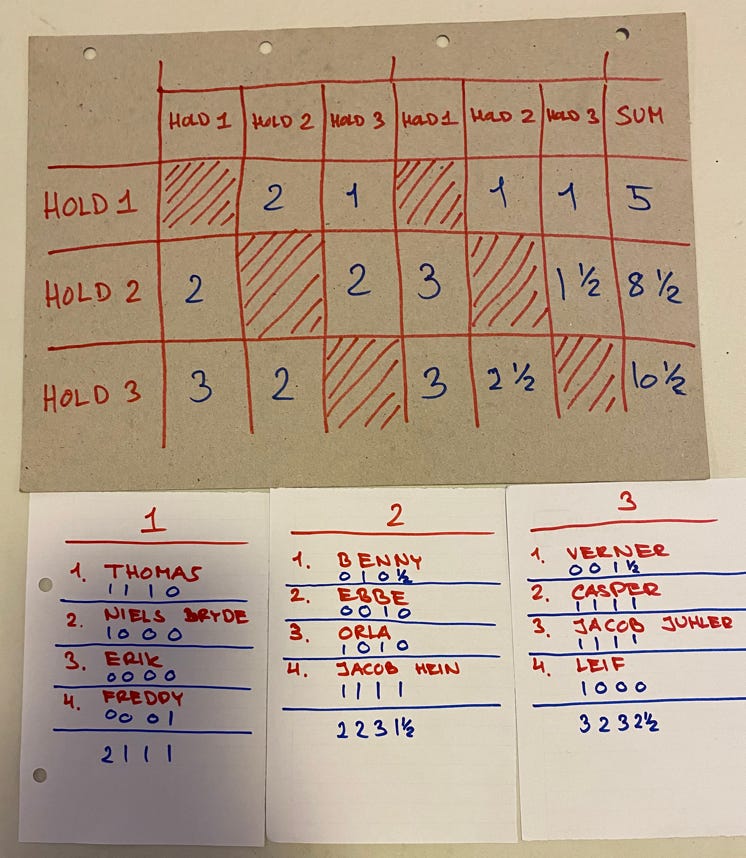 HOLD 1 HOLD 2 HOLD 3 HOLD 1 HOLD 2 HOLD 3 SUM
HOLD 1 2 1 1 1 5
HOLD 2 2 2 3 1 ½ 8 ½
HOLD 3 3 2 3 2 ½ 10 ½
1
1. THOMAS
1 1 1 0
2. NIELS BRYDE
1 0 0 0
3. ERIK
0 0 0 0
4. FREDDY
0 0 0 1
2 1 1 1
2
1. BENNY
0 1 0 ½
2. EBBE
0 0 1 0
3. ORLA
1 0 1 0
4. JACOB HEIN
1 1 1 1
2 2 3 1½
3
1. VERNER
0 0 1 ½
2. CASPER
1 1 1 1
3. JACOB JUHLER
1 1 1 1
4. LEIF
1 0 0 0
3 2 3 2½